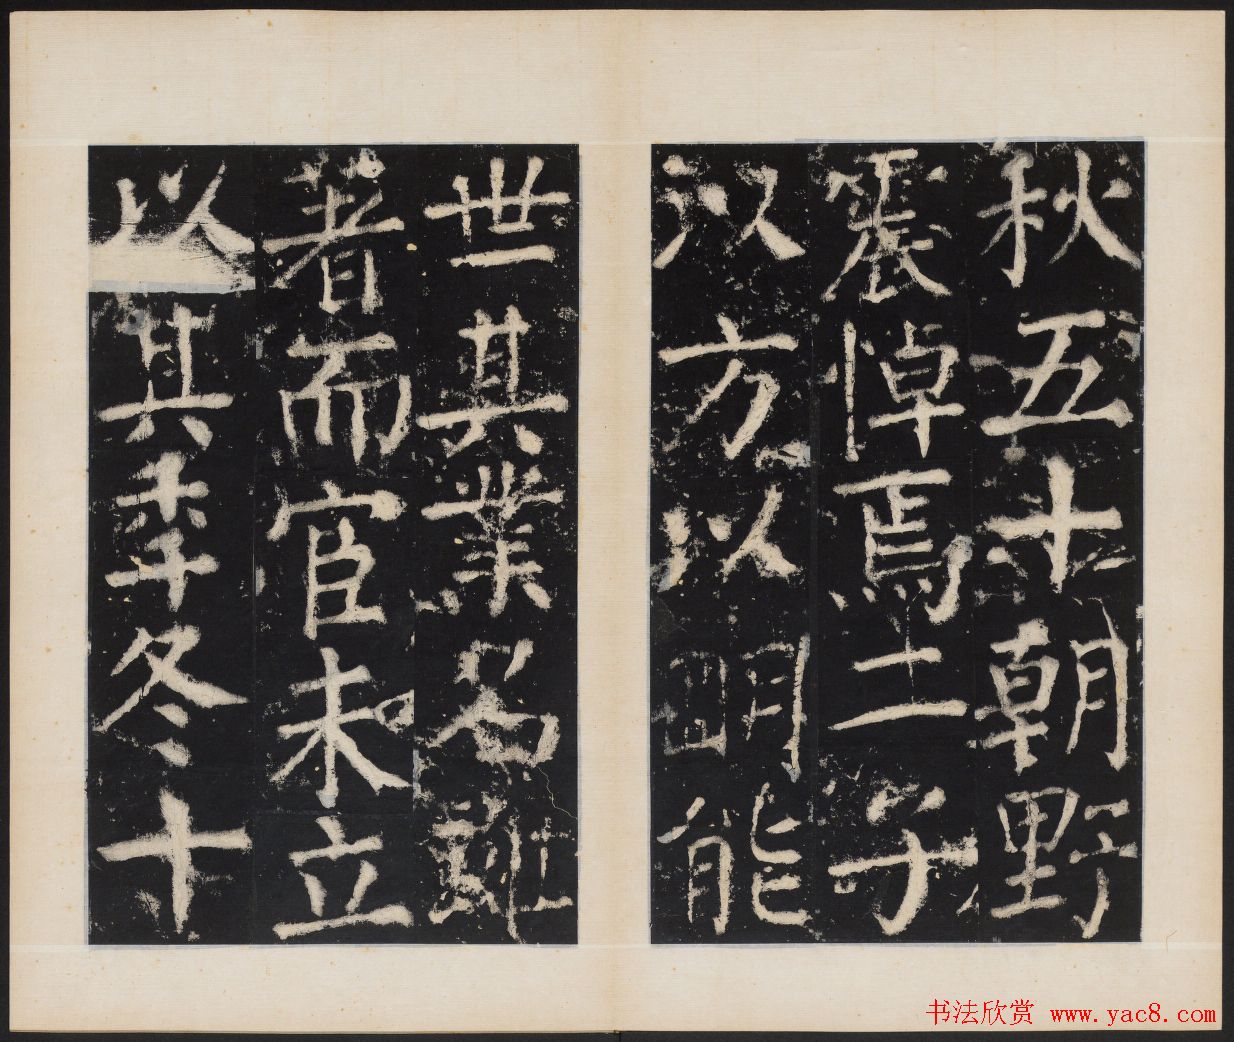 秋五十朝野
震悼焉二子
汲方以明能
世其業名雖
著而官未立
以其季冬十
书法欣赏 www.yac8.com